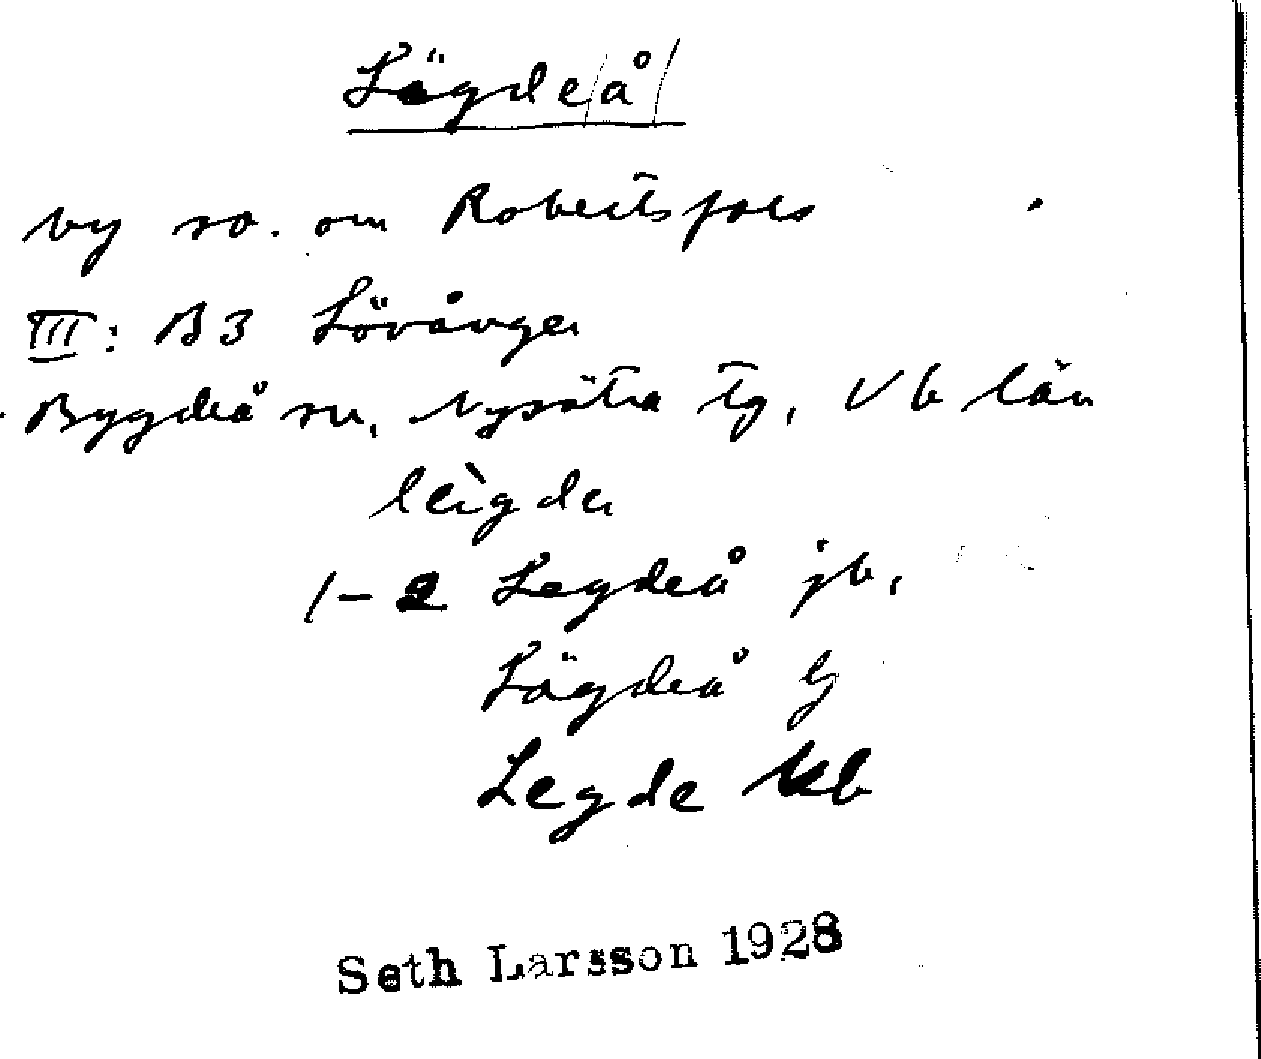 Lägde/å/
by so. om Robertsfors
III: B3 Lövånger
Bygdeå sn, Nysätra tg, Vb län
lèigdɐ
1-2 Legdeå jb,
Lägdeå
Legde kb
Seth Larsson 1928